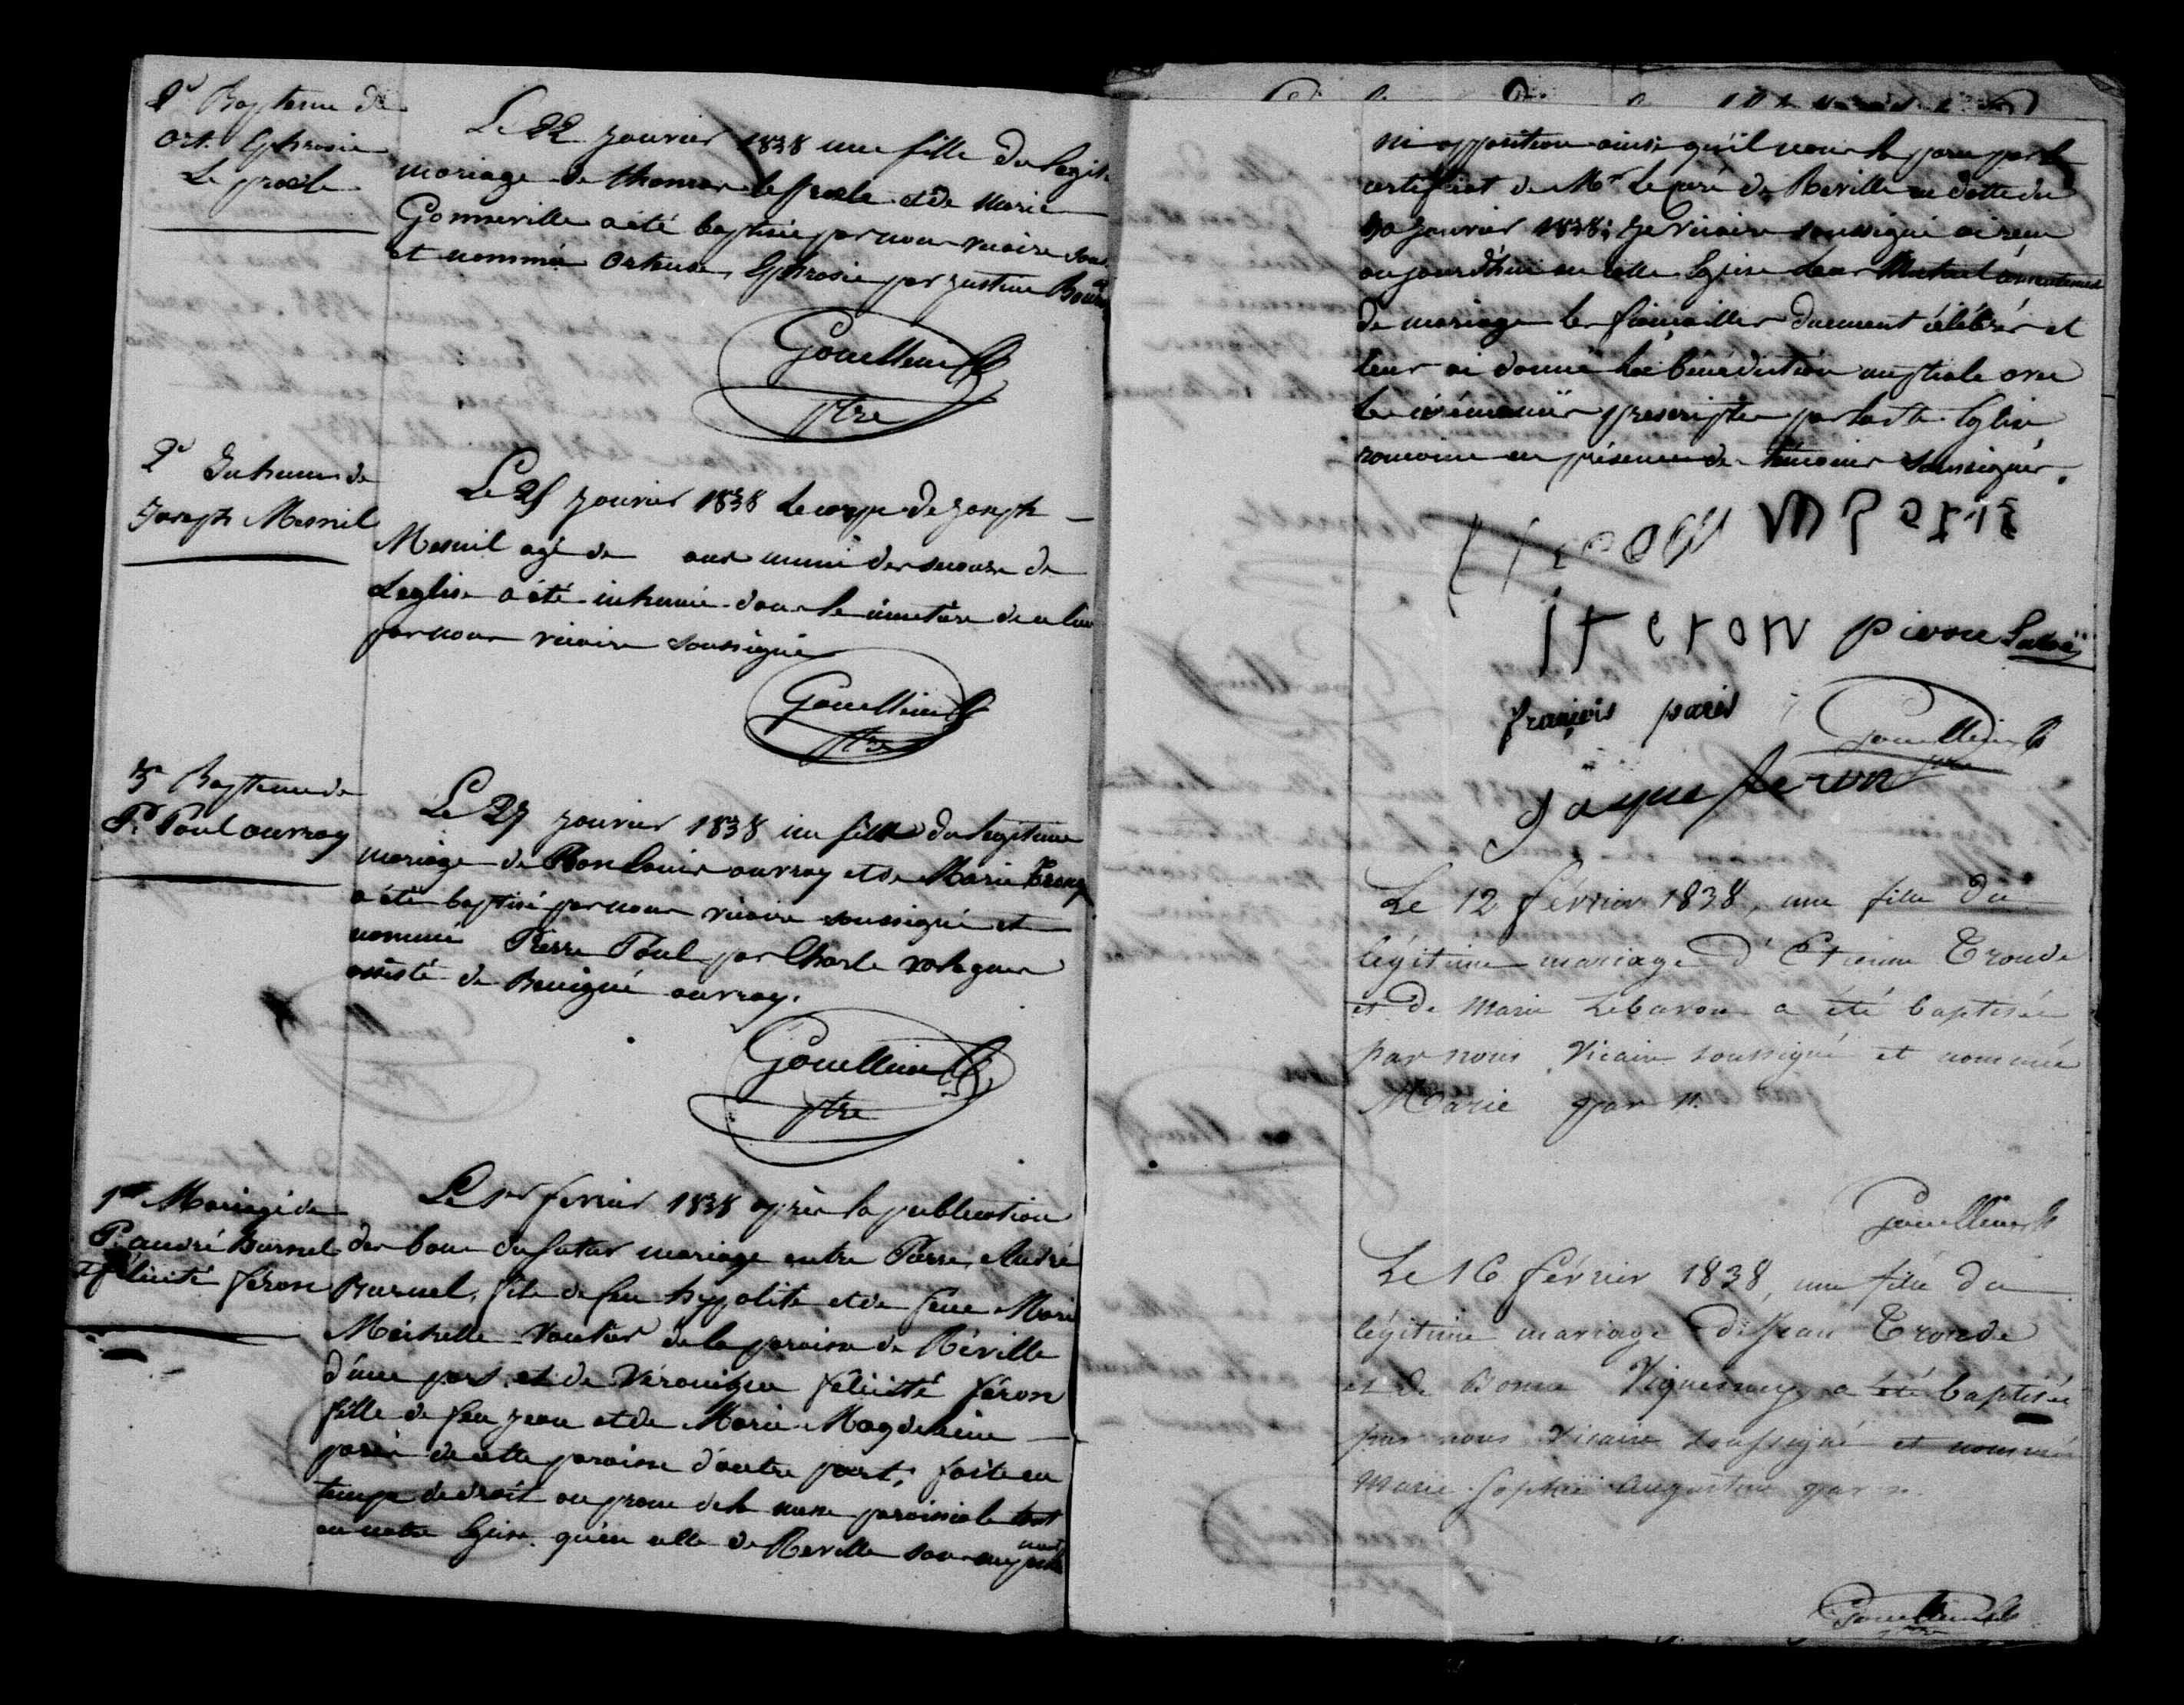 2e Bapteme de
Ort. Ephrosie
Le
Le 22 janvier 1838 une fille du legit
mariage de thomas et de Marie
Gonneville a été baptisée par nous vicaire sous
et nommée Ortense, Ephrosie par justine
Gouellain
ptre
2e Inhum de
Joseph Mesnil
Le janvier 1838 Le corps de joseph
Mesnil agé de ans muni des secours de
Leglise a été inhumé dans le cimetière de ce lieu
par nous vicaire soussigné
Gouellain
ptre
3e Bapteme de
P. Paul ouvray
Le 27 janvier 1838 un fils du legitime
mariage de Bon Louis ouvray et de Marie
a été baptisé par nous vicaire soussigné et
nommé Pierre Paul par Charle
assisté de Benigne ouvray.
Gouellain
ptre
1er Mariage de
P. andré Burnel
et félicité féron
Le 1er fevrier 1838 après la publication
des bans du futur mariage entre Pierre, André
Burnel, fils de feu hypolite et de feue Marie
Michelle Vautier de la paroisse de Réville
d'une part, et de Véronique félicité féron
fille de feu jean et de Marie Magdeleine
paris de cette paroisse d'autre part; faite en
temps de droit au prone de la messe paroissiale tant
en notre Eglise qu'en celle de Reville sans
ni opposition ainsi qu'il nous par le
certificat de Mr Le curé de Reville en datte du
30 janvier 1838; je vicaire soussigné ai reçu
aujourd'hui en cette Eglise leur Mutuel consentement
de mariage les fiançailles duement célébrés et
leur ai donné la bénédiction nuptiale avec
les cérémonies prescriptes par la ste Eglise
romaine en présence de témoins soussignés.
feron pierre
françois paris
Gouellain
ptre
jaque feron
Le 12 février 1838, une fille du
légitime mariage d'Etienne Troude
et de Marie Lebaron a été baptisée
par nous Vicaire soussigné et nommée
Marie par n.
Gouellain
Le 16 février 1838, une fille du
légitime mariage de Jean Troude
et de Bonne Viquesney a été baptisée
par nous Vicaire soussigné et nommée
Marie Sophie Augustine par n.
Gouellain
ptre